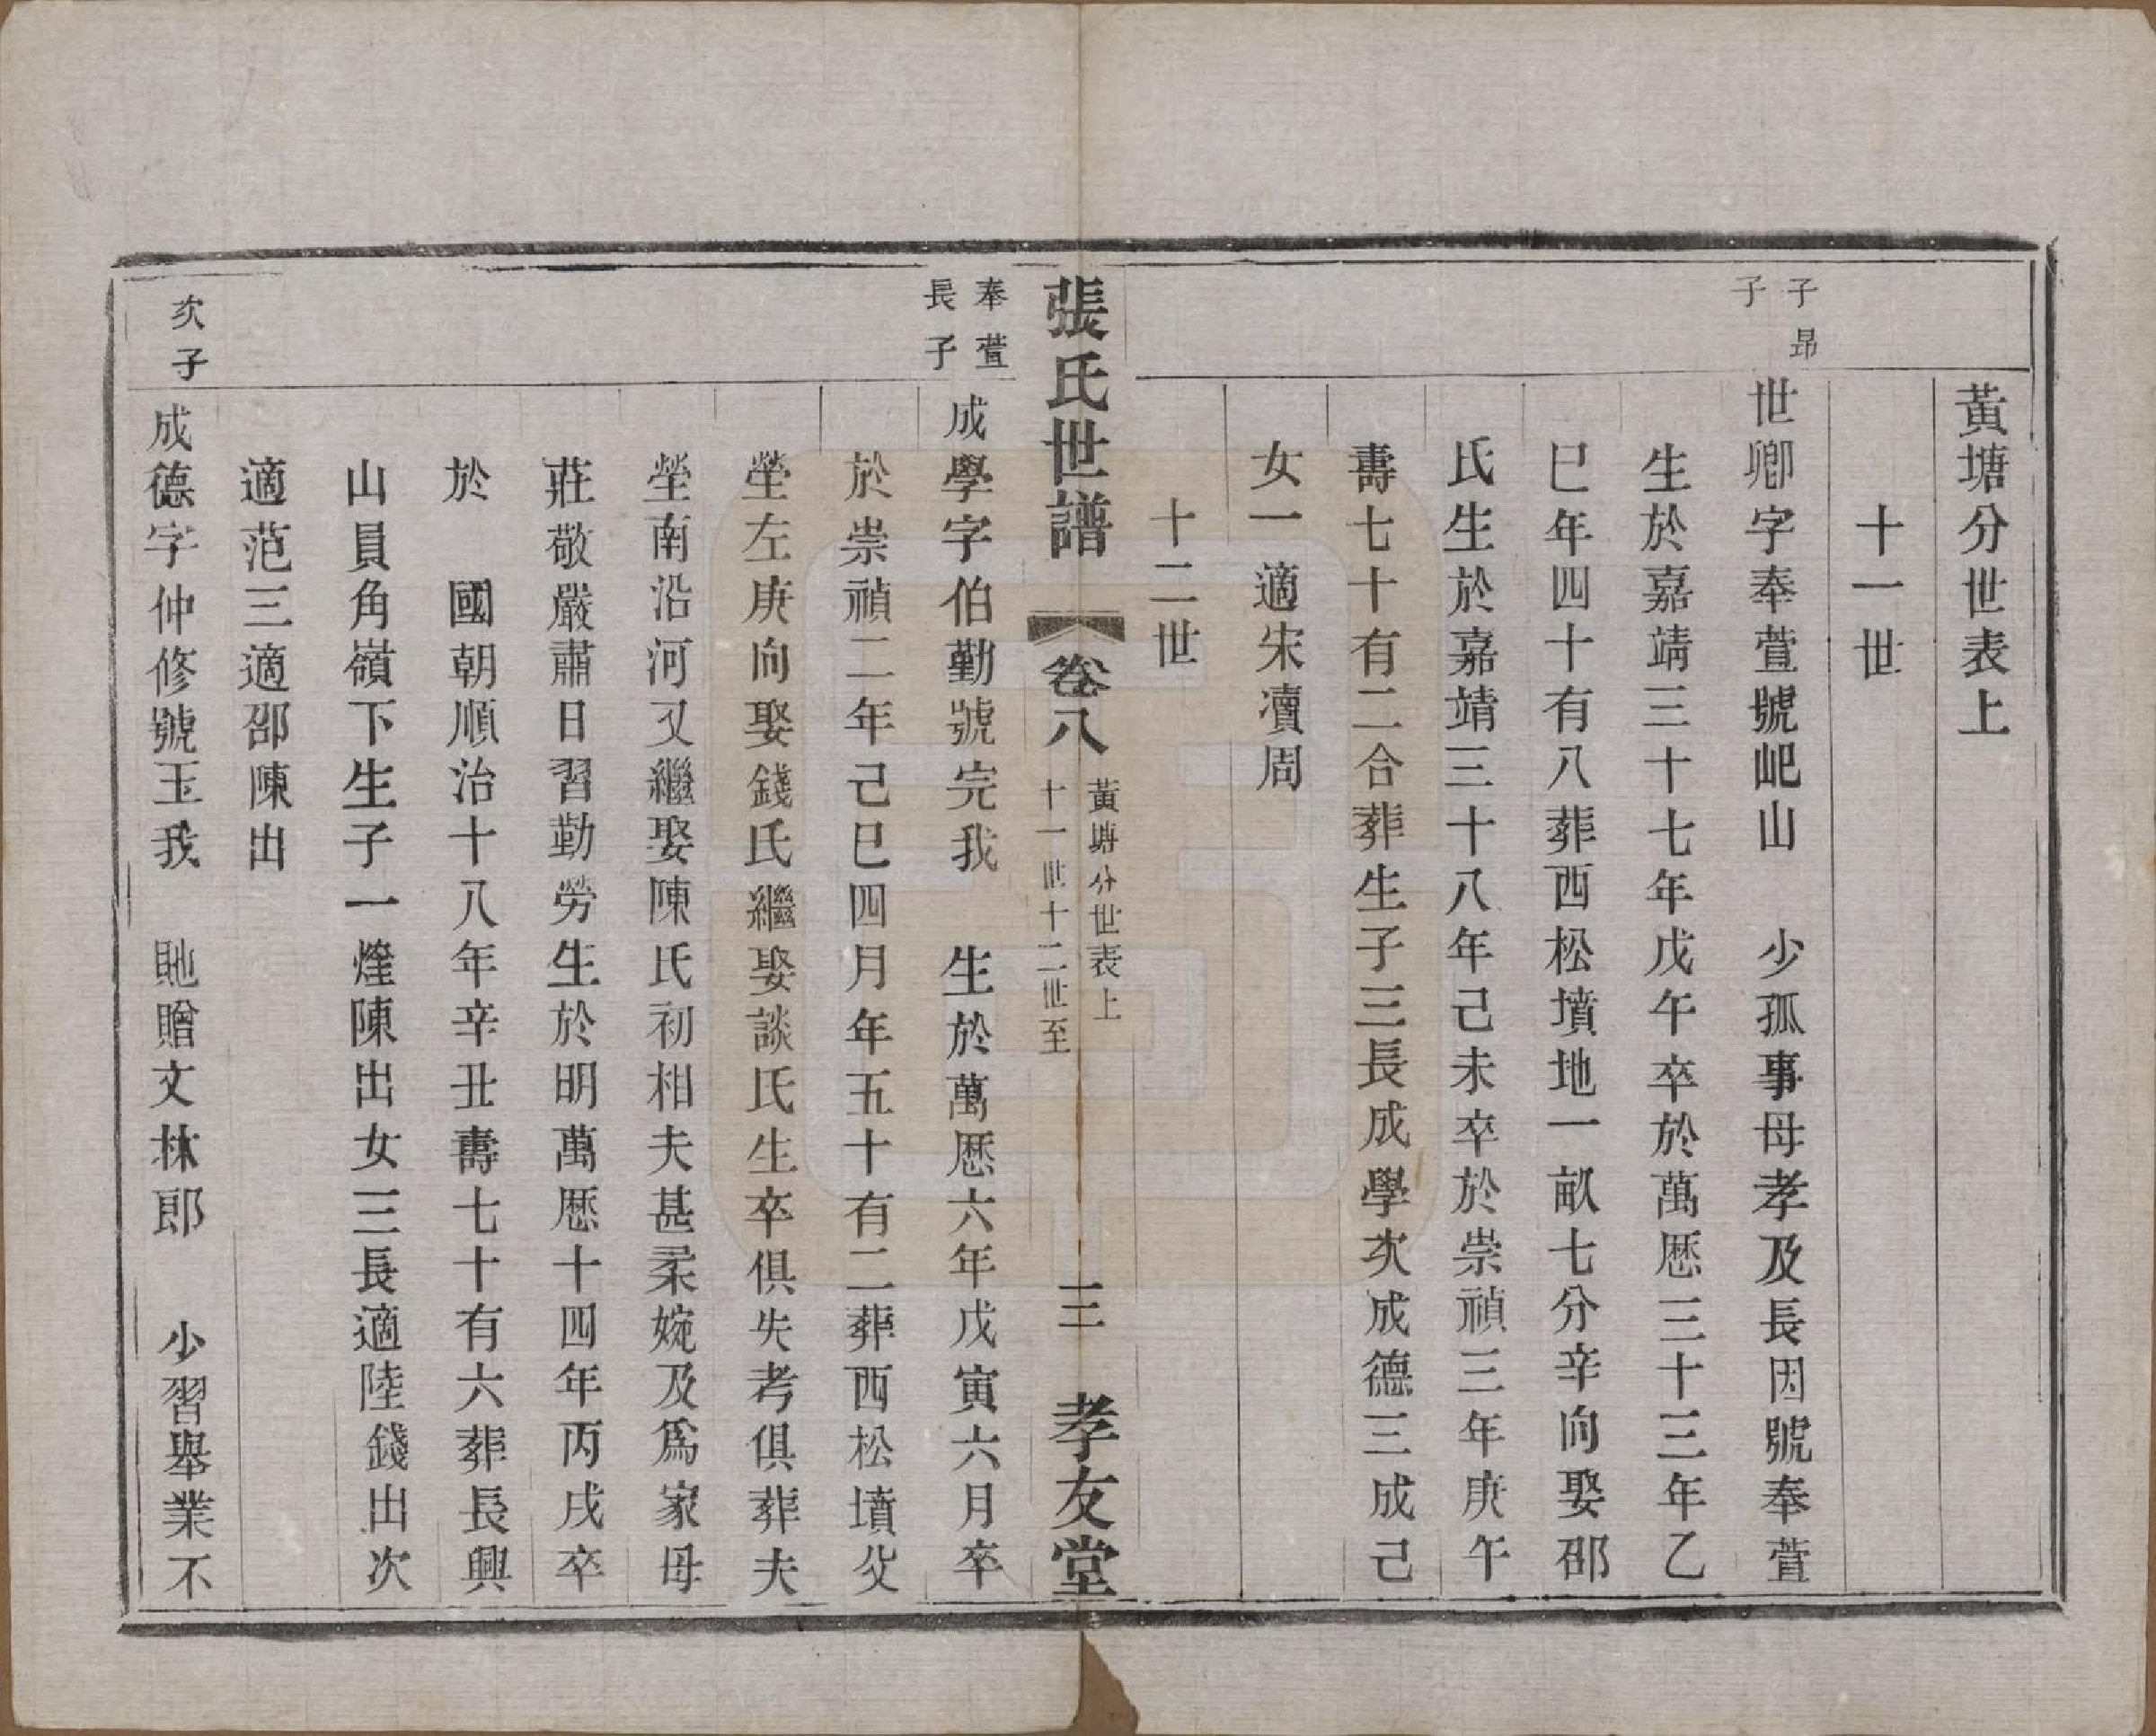 黃塘分世表上
十一世
子昂
子
世卿字奉萱號岊山　少孤事母孝及長因號奉萱
生於嘉靖三十七年戊午卒於萬厯三十三年乙
巳年四十有八葬西松墳地一畝七分辛向娶邵
氏生於嘉靖三十八年己未卒於崇禎三年庚午
壽七十有二合葬生子三長成學次成德三成己
女一適宋瀆周
十二世
張氏世譜　卷八　黃塘分世表上
十一世十二世至
三　孝友堂
奉萱
長子
成學字伯勤號完我　生於萬厯六年戊寅六月卒
於崇禎二年己巳四月年五十有二葬西松墳父
塋左庚向娶錢氏繼娶談氏生卒俱失考俱葬夫
塋南沿河又繼娶陳氏初相夫甚柔婉及爲家母
莊敬嚴肅日習勤勞生於明萬厯十四年丙戌卒
於　國朝順治十八年辛丑壽七十有六葬長興
山員角嶺下生子一煃陳出女三長適陸錢出次
適范三適邵陳出
次子
成德字仲修號玉我　貤贈文林郎　少習舉業不